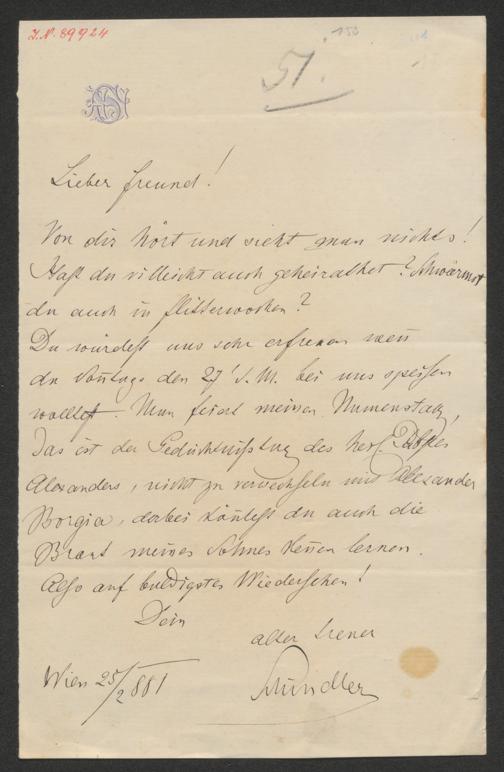 I.N. 89924
51.
150
AS
Lieber Freund!
Von dir hört und sieht man nichts!
Hast du villeicht auch geheirathet? Schwärmst
du auch in Flitterwochen?
Du würdest uns sehr erfreuen wen̄
du Son̄tags den 27t d. M. bei uns speisen
wolltest. Man feiert meinen Numenstag,
das ist der Gedächtnißtag des heil. Pabstes
Alexanders, nicht zu verwechseln mit Alexander
Borgia, dabei kön̄test du auch die
Braut meines Sohnes ken̄en lernen.
Also auf baldigstes Wiedersehen!
Dein
alter treuer
Schindler
Wien 25/2 881